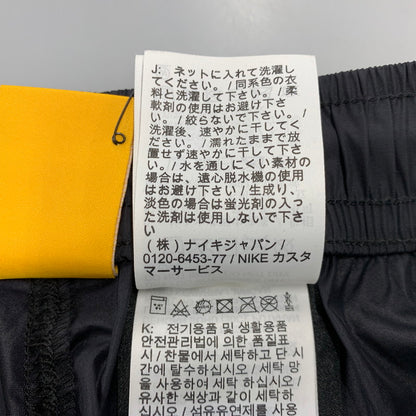 J: ネットに入れて洗濯し
て下さい。/ 同系色の衣
料と洗濯して下さい。/ 柔
軟剤の使用はお避け下さ
い。/ 絞らないで下さい。/
洗濯後、速やかに干してく
ださい。/ 濡れたままで放
置せず速やかに干して下
さい。/ 水を通しにくい素材の
場合は、遠心脱水機の使用
はお避け下さい / 生成り、
淡色の場合は蛍光剤の入っ
た洗剤は使用しないで下さ
い
(株) ナイキジャパン /
0120-6453-77 / NIKE カスタ
マーサービス
K: 전기용품 및 생활용품
안전관리법에 의한 품질표
시 / 찬물에서 세탁하고 단시
간에 탈수하십시오 / 세탁 망
을 사용하여 세탁 하십시오 /
유사한 색상과 같이 세탁하
십시오 / 섬유유연제를 사용